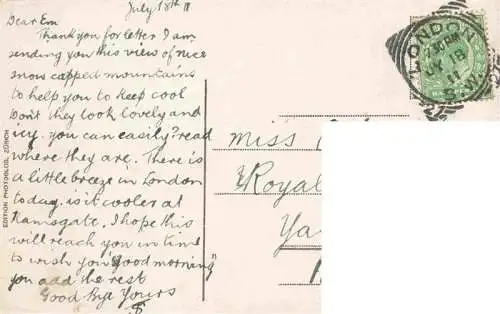 July 18th 11
Dear Em
Thank you for letter I am
sending you this view of nice
snow capped mountains
to help you to keep cool
Don't they look lovely and
icy. you can easily? read
where they are. There is
a little breeze in London
today. is it cooler at
Ramsgate. I hope this
will reach you in time
to wish you "good morning"
you add the rest
Good Bye Yours
EDITION PHOTOGLOB, ZÜRICH
LONDON
JY 18
11
Miss
Royal
Ya